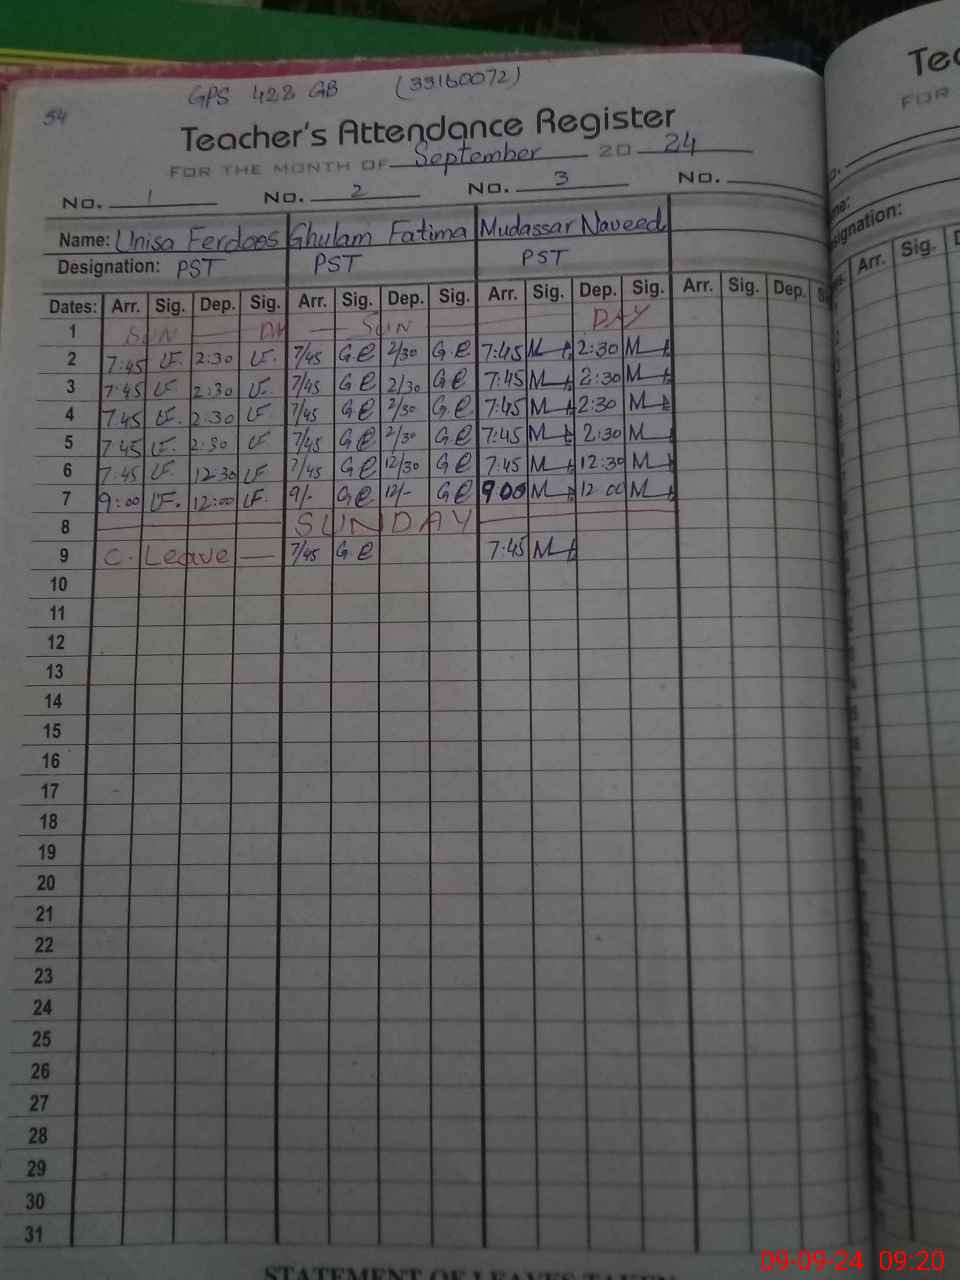 54
GPS 428 GB (33160072)
Teacher's Attendance Register
FOR THE MONTH OF September 20 24
No. 1 No. 2 No. 3 No.
Name: Unisa Ferdoes Ghulam Fatima Mudassar Naveed
Designation: PST PST PST
Dates: Arr. Sig. Dep. Sig. Arr. Sig. Dep. Sig. Arr. Sig. Dep. Sig. Arr. Sig. Dep.
1 SUN DAY
2 7:45 UF. 2:30 UF. 7/45 G.e 2/30 G.e 7:45 M 2:30 M
3 7:45 UF 2:30 UF. 7/45 Ge 2/30 Ge 7:45 M 2:30 M
4 7:45 UF. 2:30 UF 7/45 Ge 2/30 G.e. 7:45 M 2:30 M
5 7:45 UF. 2:30 UF 7/45 Ge 2/30 G.e 7:45 M 2:30 M
6 7:45 UF 12:30 UF 7/45 Ge 12/30 Ge 7:45 M 12:30 M
7 9:00 UF. 12:00 UF. 9/- Ge 12/- Ge 9:00 M 12:00 M
8 SUNDAY
9 C. Leave 7/45 G.e 7:45 M
10
11
12
13
14
15
16
17
18
19
20
21
22
23
24
25
26
27
28
29
30
31
STATEMENT OF LEAVES TAKEN
FOR
Arr. Sig.
09-09-24 09:20